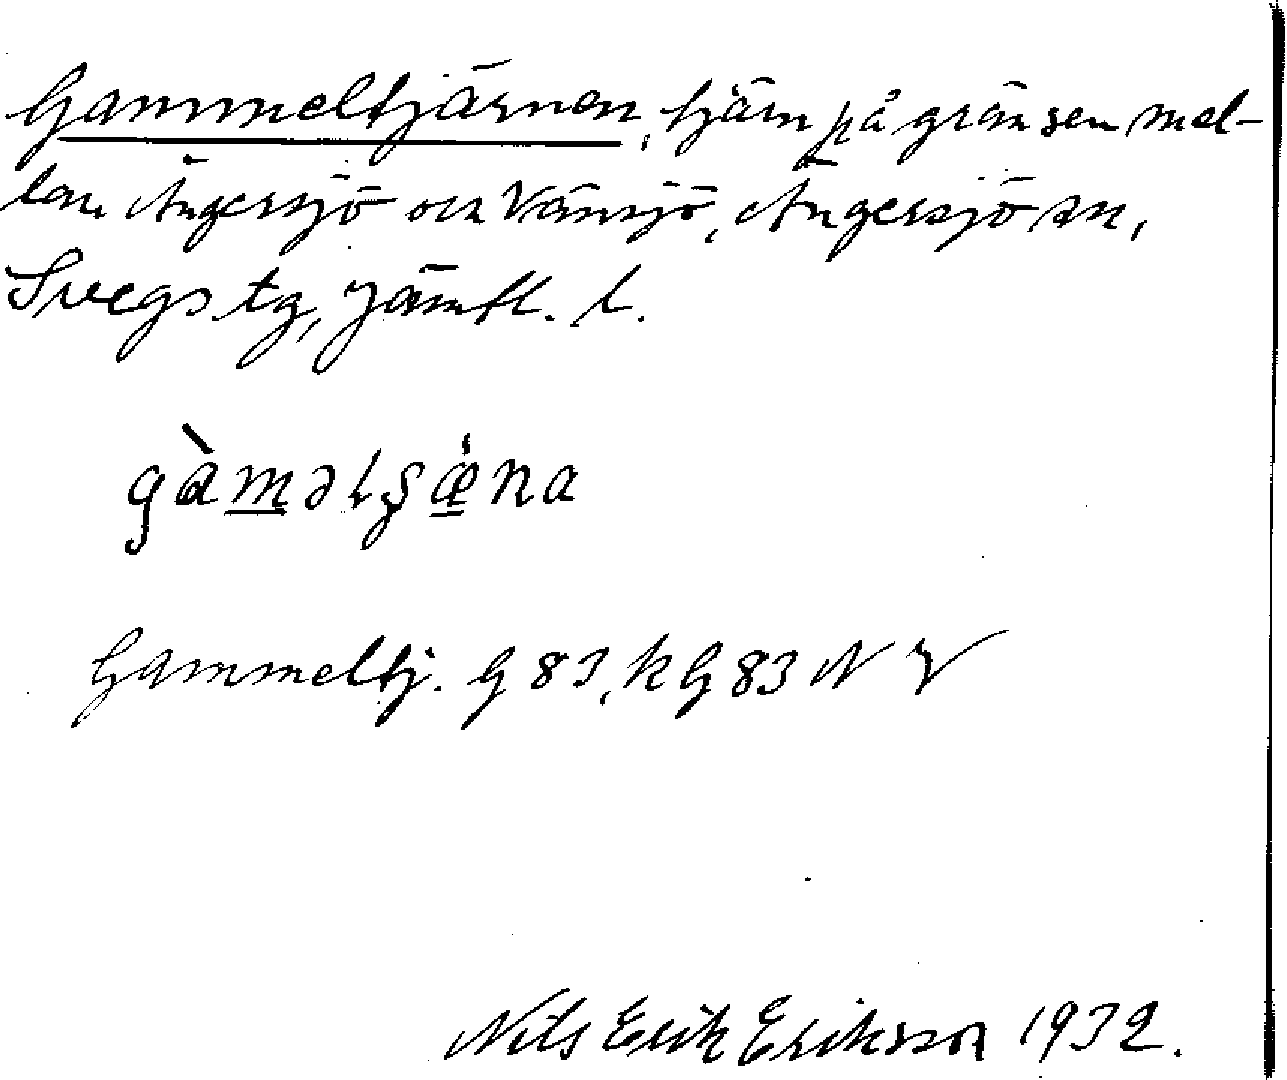 Gammeltjärnen, tjärn på gränsen mel-
lan Ängersjö och Vänsjö, Ängersjö sn,
Svegs tg, Jämtl. l.
gàməlʂǽna
Gammeltj. G 83, k G 83 N V
Nils Erik Eriksson 1932.